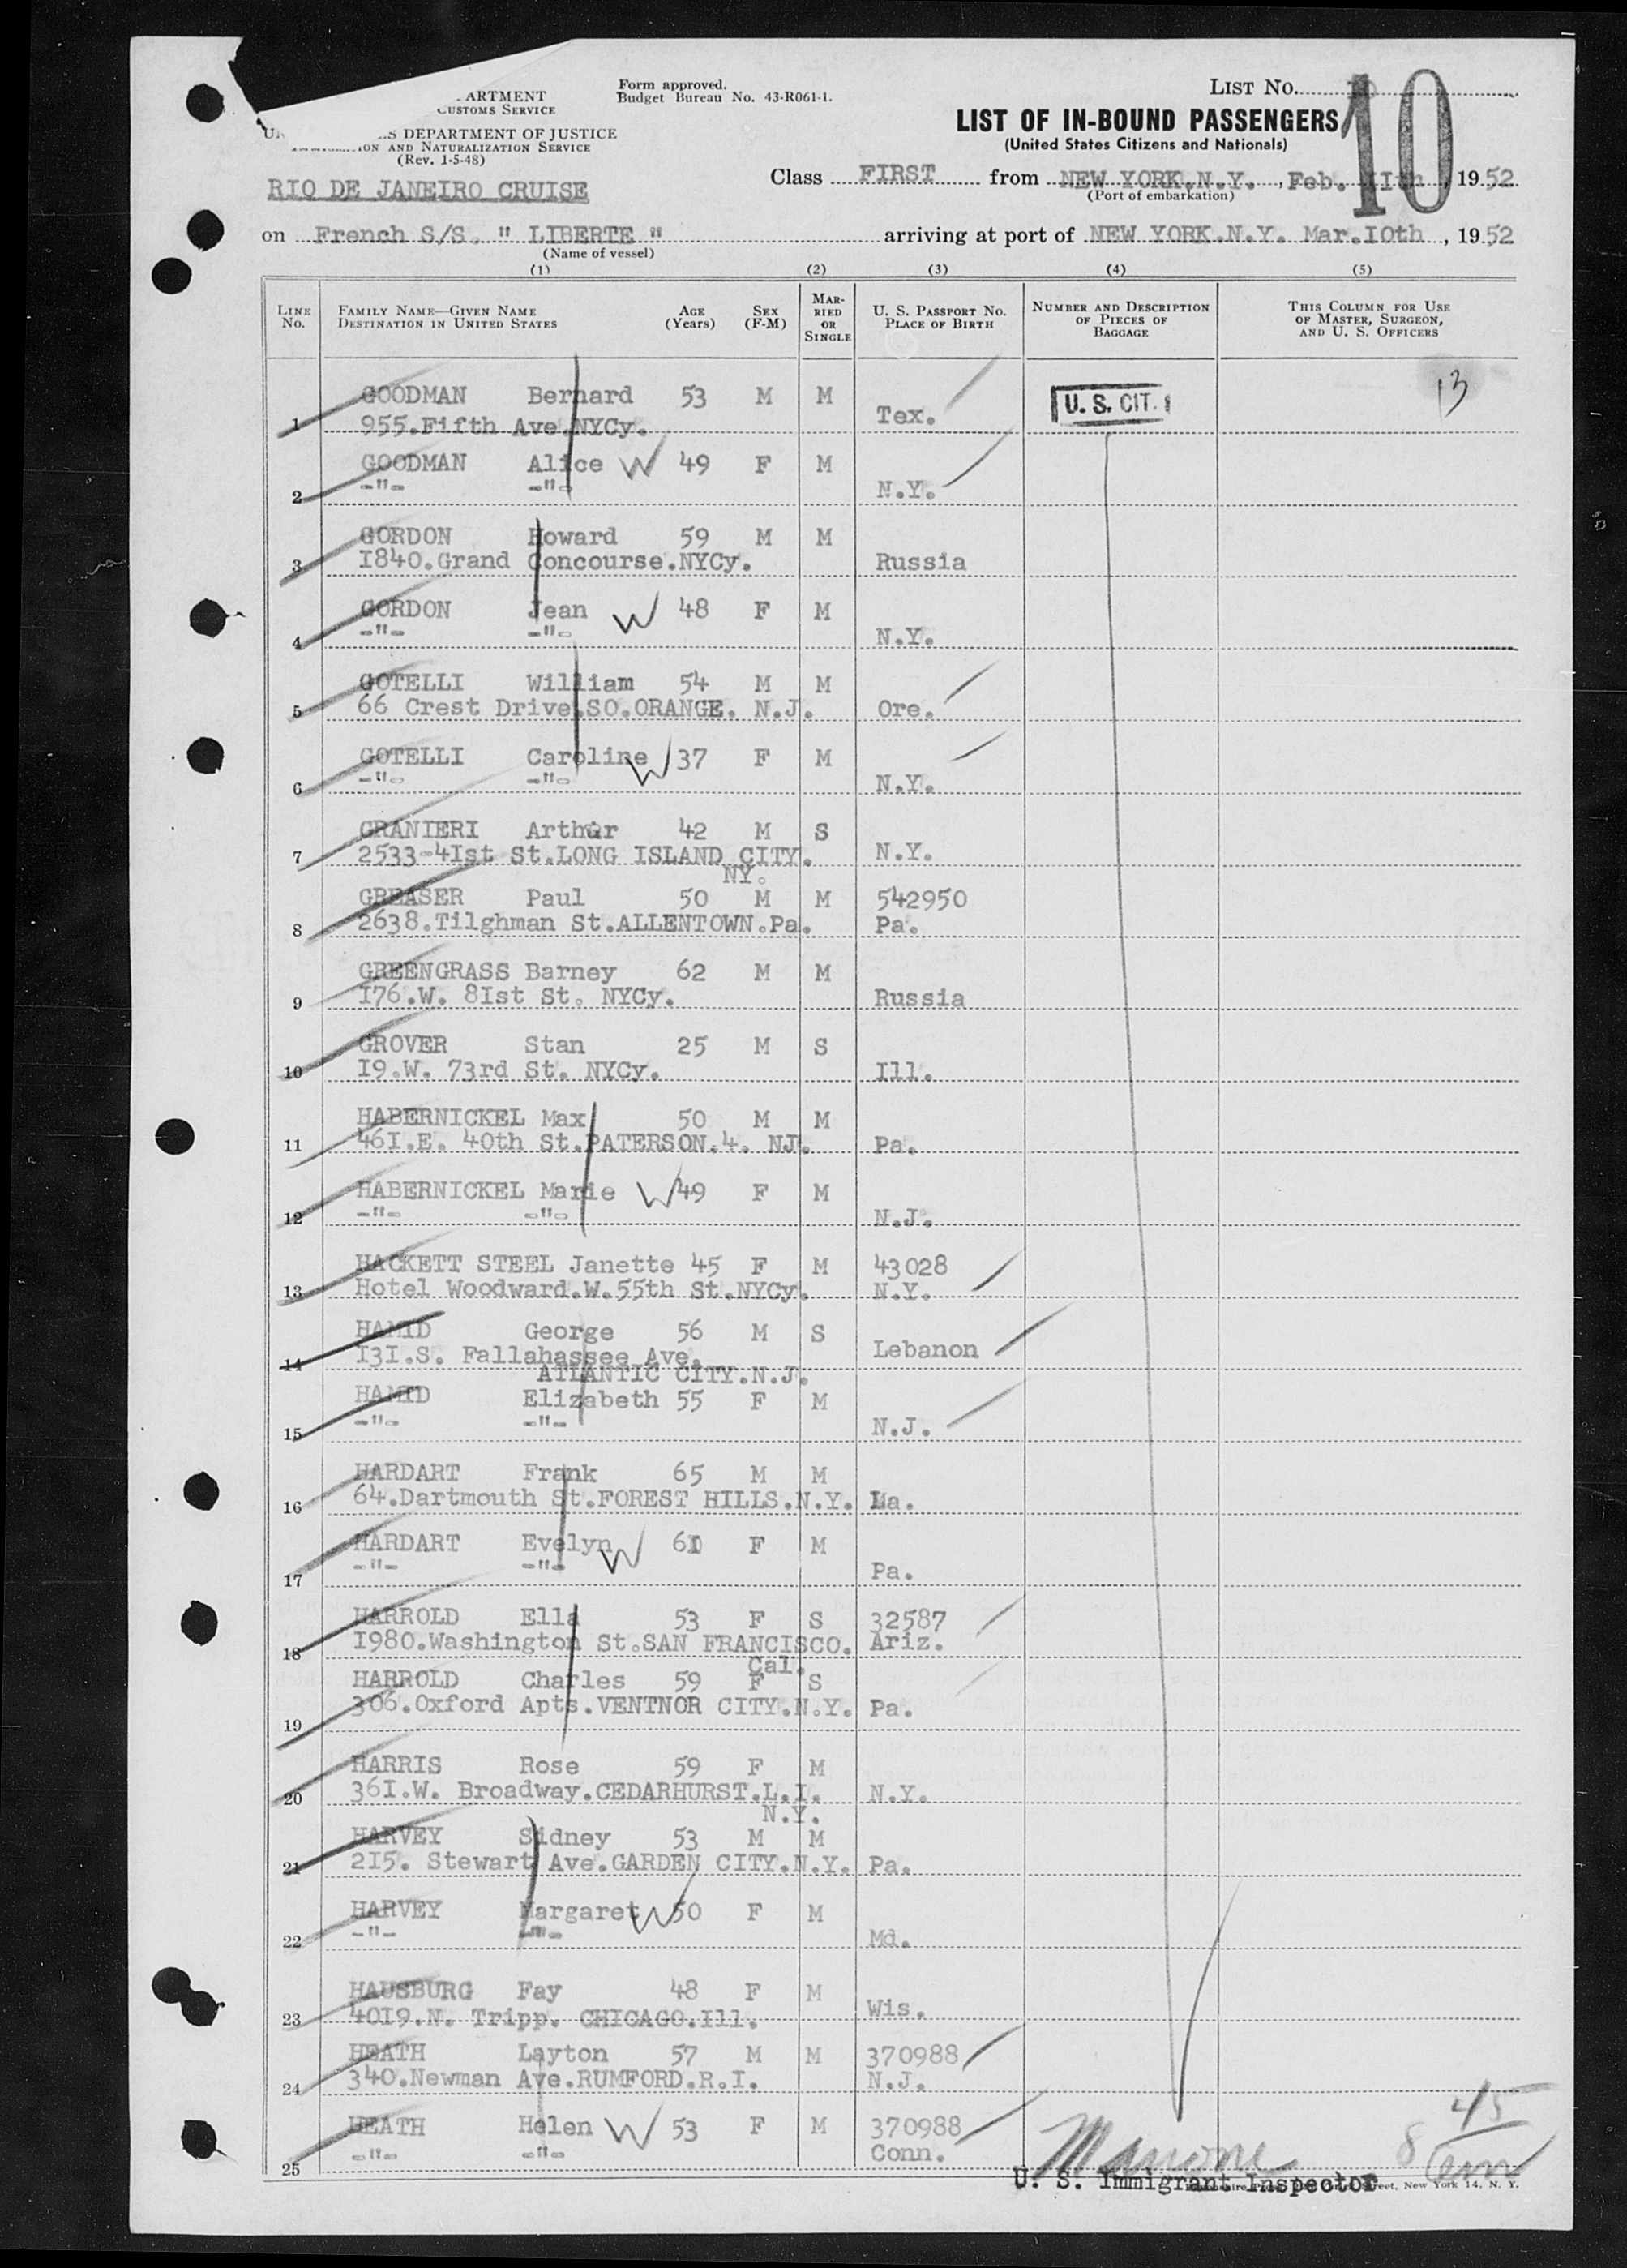 ARTMENT
CUSTOMS SERVICE
Form approved.
Budget Bureau No. 43-R061-1.
LIST No. 10
DEPARTMENT OF JUSTICE
ION AND NATURALIZATION SERVICE
(Rev. 1-5-48)
LIST OF IN-BOUND PASSENGERS
(United States Citizens and Nationals)
RIO DE JANEIRO CRUISE
Class FIRST from NEW YORK.N.Y. , Feb. IIth , 19 52
(Port of embarkation)
on French S/S. " LIBERTE " arriving at port of NEW YORK.N.Y. Mar.IOth , 19 52
(Name of vessel)
(1) (2) (3) (4) (5)
LINE No. FAMILY NAME—GIVEN NAME DESTINATION IN UNITED STATES AGE (Years) SEX (F-M) MARRIED OR SINGLE U. S. PASSPORT No. PLACE OF BIRTH NUMBER AND DESCRIPTION OF PIECES OF BAGGAGE THIS COLUMN FOR USE OF MASTER, SURGEON, AND U. S. OFFICERS
GOODMAN Bernard 53 M M U. S. CIT. 13
1 955.Fifth Ave.NYCy. Tex.
GOODMAN Alice W 49 F M
2 -"- -"- N.Y.
GORDON Howard 59 M M
3 I840.Grand Concourse.NYCy. Russia
GORDON Jean W 48 F M
4 -"- -"- N.Y.
GOTELLI William 54 M M
5 66 Crest Drive.SO.ORANGE. N.J. Ore.
GOTELLI Caroline W 37 F M
6 -"- -"- N.Y.
GRANIERI Arthur 42 M S
7 2533-4Ist St.LONG ISLAND CITY. N.Y.
NY.
GREASER Paul 50 M M 542950
8 2638.Tilghman St.ALLENTOWN.Pa. Pa.
GREENGRASS Barney 62 M M
9 I76.W. 8Ist St. NYCy. Russia
GROVER Stan 25 M S
10 I9.W. 73rd St. NYCy. Ill.
HABERNICKEL Max 50 M M
11 46I.E. 40th St.PATERSON.4. NJ. Pa.
HABERNICKEL Marie W 49 F M
12 -"- -"- N.J.
HACKETT STEEL Janette 45 F M 43028
13 Hotel Woodward.W.55th St.NYCy. N.Y.
HAMID George 56 M S
14 I3I.S. Fallahassee Ave. Lebanon
ATLANTIC CITY.N.J.
HAMID Elizabeth 55 F M
15 -"- -"- N.J.
HARDART Frank 65 M M
16 64.Dartmouth St.FOREST HILLS.N.Y. La.
HARDART Evelyn W 61 F M
17 -"- -"- Pa.
HARROLD Ella 53 F S 32587
18 I980.Washington St.SAN FRANCISCO. Ariz.
Cal.
HARROLD Charles 59 F S
19 306.Oxford Apts.VENTNOR CITY.N.Y. Pa.
HARRIS Rose 59 F M
20 36I.W. Broadway.CEDARHURST.L.I. N.Y.
N.Y.
HARVEY Sidney 53 M M
21 2I5. Stewart Ave.GARDEN CITY.N.Y. Pa.
HARVEY Margaret W 50 F M
22 -"- -"- Md.
HAUSBURG Fay 48 F M
23 40I9.N. Tripp. CHICAGO.Ill. Wis.
HEATH Layton 57 M M 370988
24 340.Newman Ave.RUMFORD.R.I. N.J.
HEATH Helen W 53 F M 370988
25 -"- -"- Conn.
45
8
U. S. Immigrant Inspector
New York 14, N. Y.